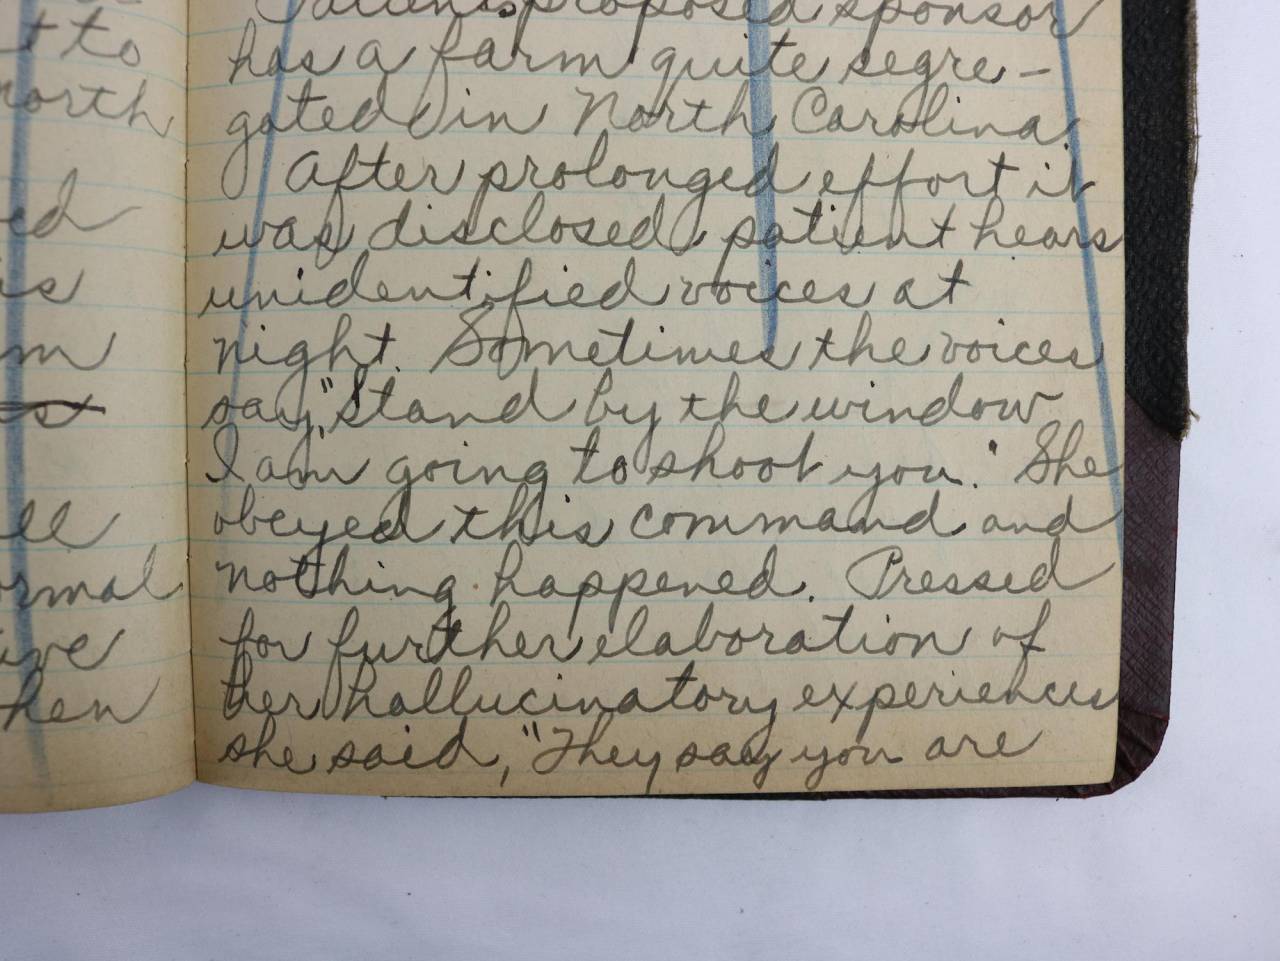 t to
north
ed
is
m
st
ll
ormal
ive
hen
Patient's proposed sponsor
has a farm quite segre-
gated in North Carolina.
After prolonged effort it
was disclosed patient hears
unidentified voices at
night. Sometimes the voices
say, "Stand by the window
I am going to shoot you." She
obeyed this command and
nothing happened. Pressed
for further elaboration of
her hallucinatory experiences
she said, "They say you are